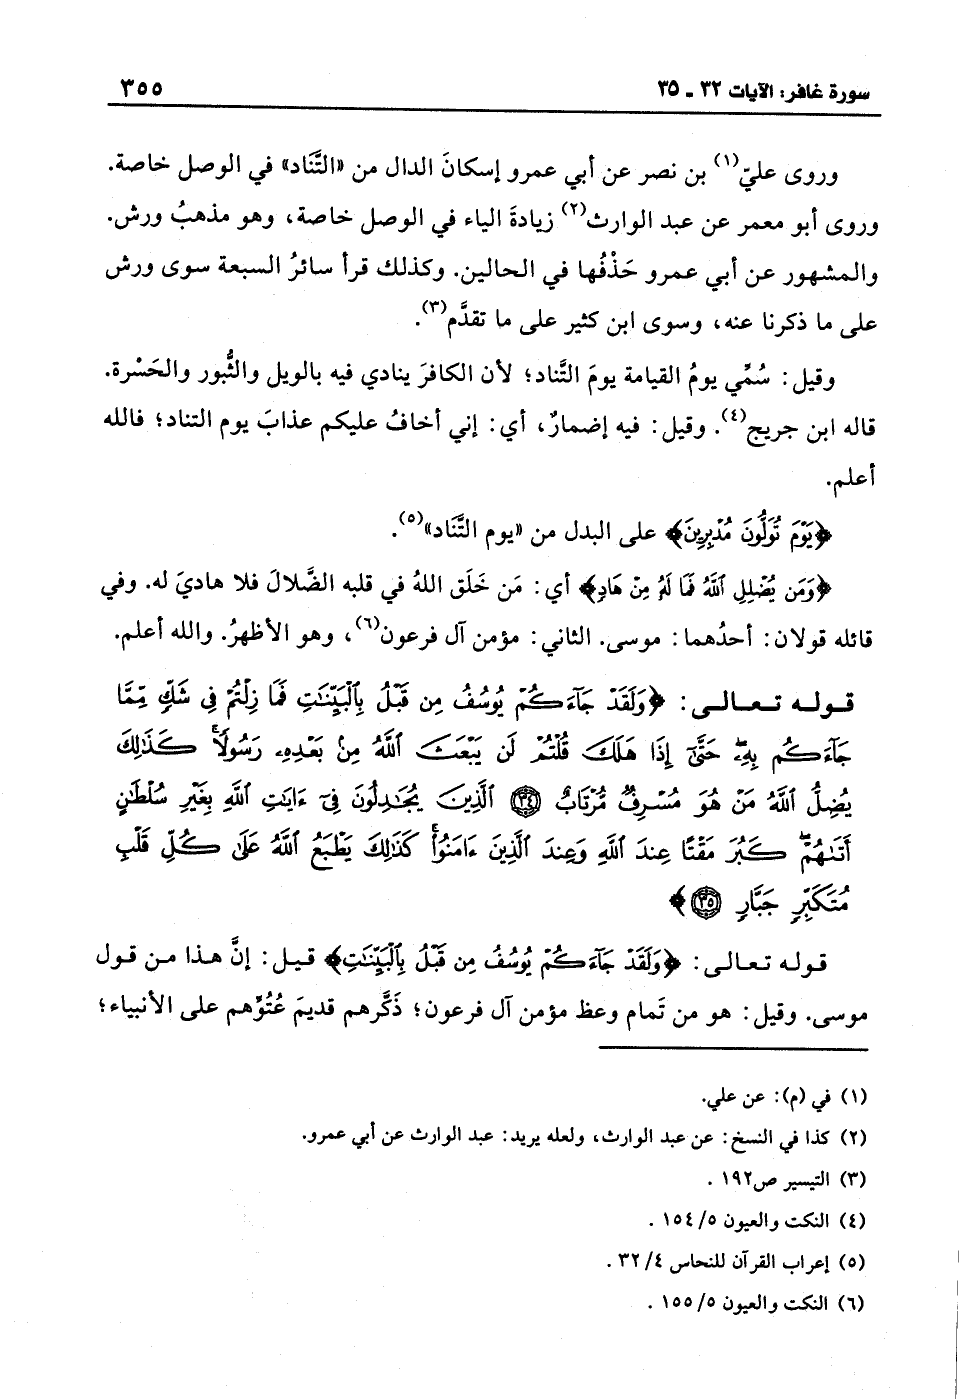 سورة غافر: الآيات ٣٢ - ٣٥ ٣٥٥
وروى عليّ(١) بن نصر عن أبي عمرو إسكانَ الدال من «التَّنَاد» في الوصل خاصة.
وروى أبو معمر عن عبد الوارث(٢) زيادةَ الياء في الوصل خاصة، وهو مذهبُ ورش.
والمشهور عن أبي عمرو حَذْفُها في الحالين. وكذلك قرأ سائرُ السبعة سوى ورش
على ما ذكرنا عنه، وسوى ابن كثير على ما تقدَّم(٣).
وقيل: سُمِّي يومُ القيامة يومَ التَّناد؛ لأن الكافرَ ينادي فيه بالويل والثُّبور والحَسْرة.
قاله ابن جريج(٤). وقيل: فيه إضمارٌ، أي: إني أخافُ عليكم عذابَ يوم التناد؛ فالله
أعلم.
﴿يَوْمَ تُوَلُّونَ مُدْبِرِينَ﴾ على البدل من «يوم التَّنَاد»(٥).
﴿وَمَن يُضْلِلِ ٱللَّهُ فَمَا لَهُ مِنْ هَادٍ﴾ أي: مَن خَلَق اللهُ في قلبه الضَّلالَ فلا هاديَ له. وفي
قائله قولان: أحدُهما: موسى. الثاني: مؤمن آل فرعون(٦)، وهو الأظهرُ. والله أعلم.
قوله تعالى: ﴿وَلَقَدْ جَآءَكُمْ يُوسُفُ مِن قَبْلُ بِٱلْبَيِّنَٰتِ فَمَا زِلْتُمْ فِى شَكٍّ مِّمَّا
جَآءَكُم بِهِۦ حَتَّىٰٓ إِذَا هَلَكَ قُلْتُمْ لَن يَبْعَثَ ٱللَّهُ مِنۢ بَعْدِهِۦ رَسُولًا كَذَٰلِكَ
يُضِلُّ ٱللَّهُ مَنْ هُوَ مُسْرِفٌ مُّرْتَابٌ ٣٤ ٱلَّذِينَ يُجَٰدِلُونَ فِىٓ ءَايَٰتِ ٱللَّهِ بِغَيْرِ سُلْطَٰنٍ
أَتَىٰهُمْ كَبُرَ مَقْتًا عِندَ ٱللَّهِ وَعِندَ ٱلَّذِينَ ءَامَنُوا۟ كَذَٰلِكَ يَطْبَعُ ٱللَّهُ عَلَىٰ كُلِّ قَلْبِ
مُتَكَبِّرٍ جَبَّارٍ ٣٥﴾
قوله تعالى: ﴿وَلَقَدْ جَآءَكُمْ يُوسُفُ مِن قَبْلُ بِٱلْبَيِّنَٰتِ﴾ قيل: إنَّ هذا من قول
موسى. وقيل: هو من تَمام وعظ مؤمن آل فرعون؛ ذَكَّرهم قديمَ عُتُوِّهم على الأنبياء؛
(١) في (م): عن علي.
(٢) كذا في النسخ: عن عبد الوارث، ولعله يريد: عبد الوارث عن أبي عمرو.
(٣) التيسير ص١٩٢ .
(٤) النكت والعيون ٥/ ١٥٤ .
(٥) إعراب القرآن للنحاس ٤/ ٣٢ .
(٦) النكت والعيون ٥/ ١٥٥ .